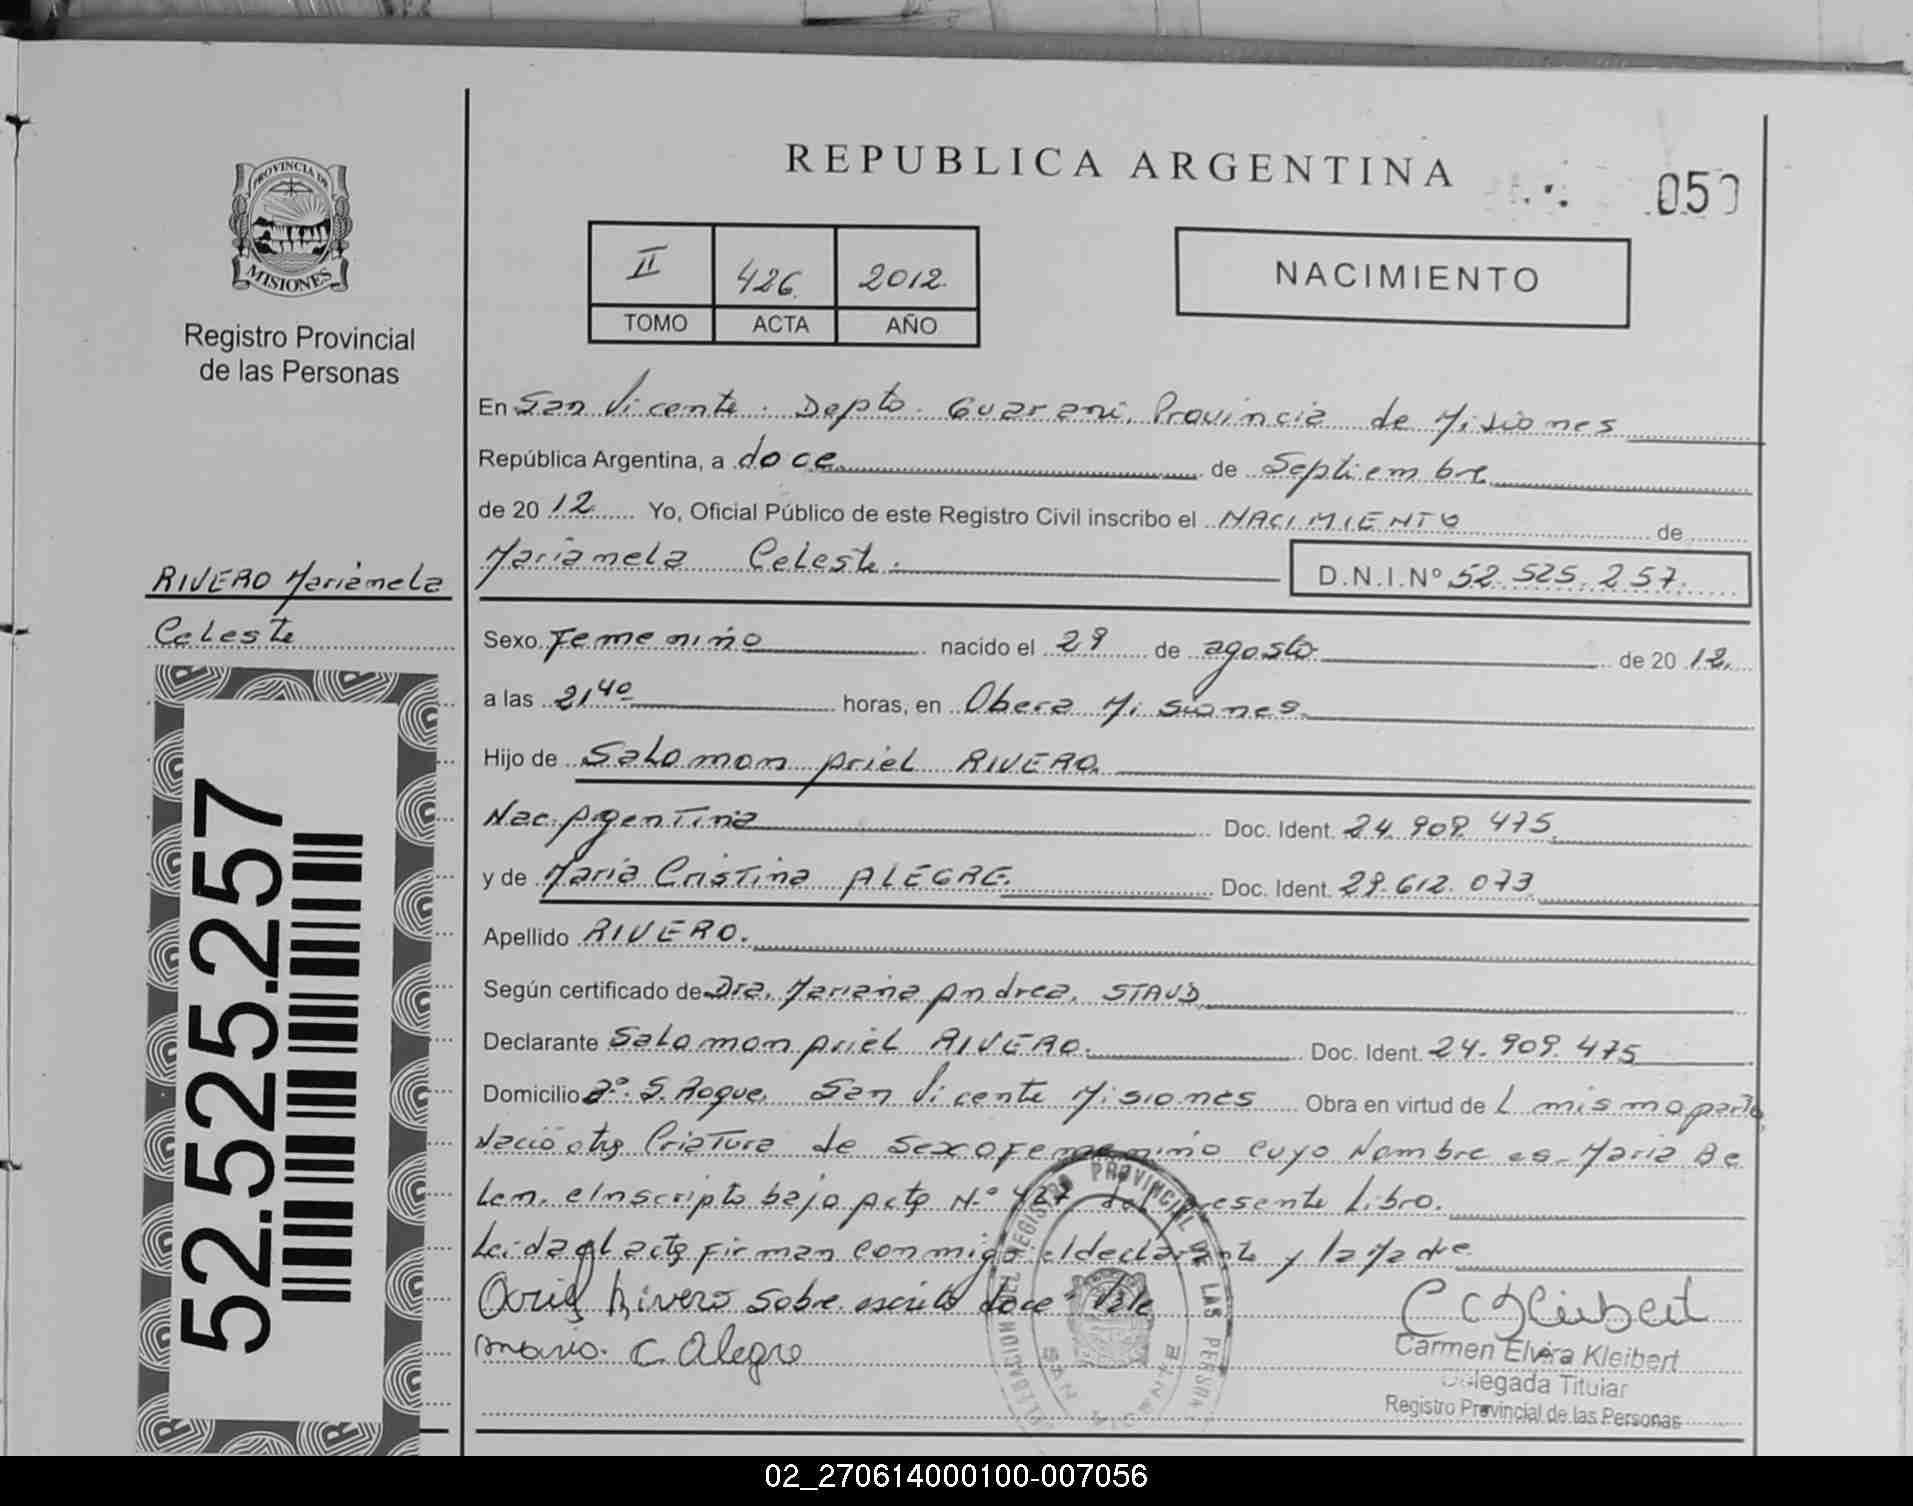 PROVINCIA DE
MISIONES
Registro Provincial
de las Personas
RIVERO Mariamela
Celeste
52.525.257
REPUBLICA ARGENTINA
050
II 426 2012
TOMO ACTA AÑO
NACIMIENTO
En San Vicente. Depto. Guarani, Provincia de Misiones
República Argentina, a doce de Septiembre
de 2012 Yo, Oficial Público de este Registro Civil inscribo el NACIMIENTO de
Mariamela Celeste. D.N.I.Nº 52.525.257.
Sexo Femenino nacido el 29 de agosto de 2012.
a las 21 40 horas, en Obera Misiones
Hijo de Salomon Ariel RIVERO.
Nac. Argentina Doc. Ident. 24.909.475
y de Maria Cristina ALEGRE. Doc. Ident. 29.612.073
Apellido RIVERO.
Según certificado de Dra. Mariana Andrea. STAUD
Declarante Salomon Ariel RIVERO. Doc. Ident. 24.909.475
Domicilio Bº. S. Roque. San Vicente Misiones Obra en virtud de L mismo parto
Nació otra Criatura de sexo femenino cuyo Nombre es Maria Be
len. e Inscripta bajo acta N.º 427 del presente Libro.
Leida el acta firman conmigo el declarante y la Madre
Ariel Rivero Sobre escrito doce = Vale
Maria C. Alegre
DELEGACION DEL REGISTRO PROVINCIAL DE LAS PERSONAS
SAN VICENTE
Carmen Elvira Kleibert
Delegada Titular
Registro Provincial de las Personas
02_270614000100-007056